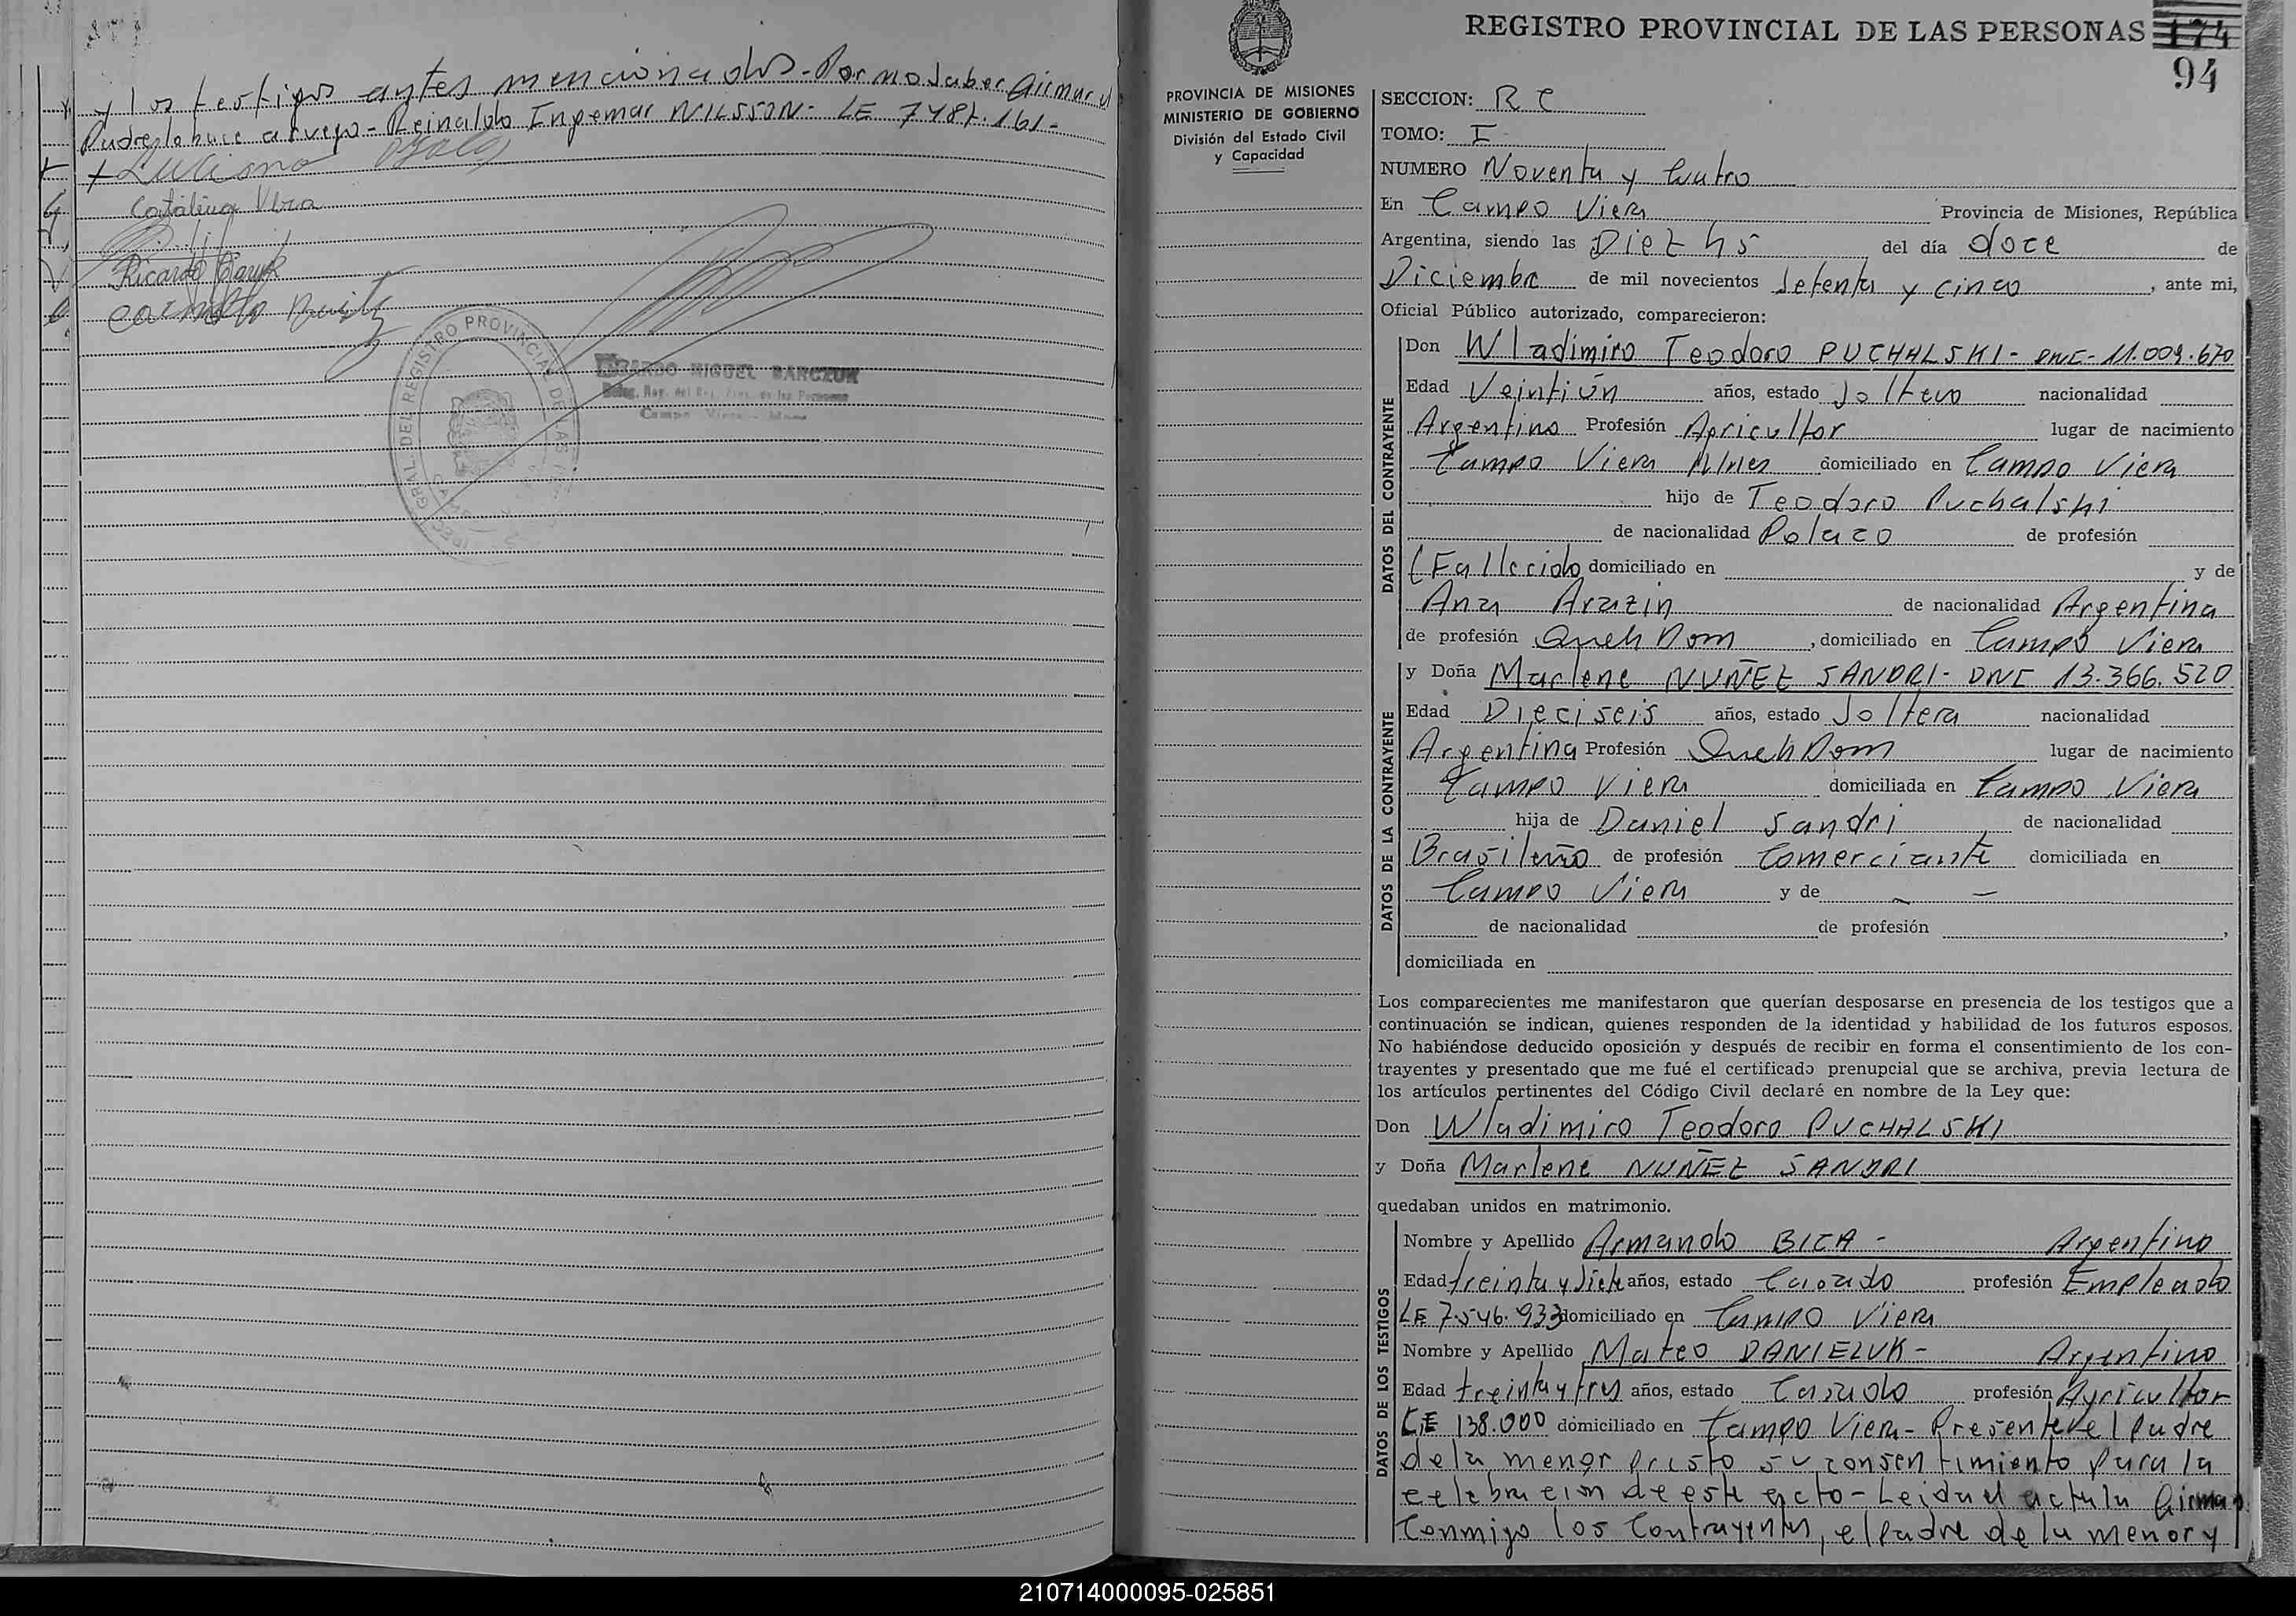 y los testigos antes mencionados - Por no saber firmar el
Padre lo hace a ruego - Reinaldo Ingemar NILSSON - LE 7481.161 -
+ Luciano
Catalina Vera
Ricardo
MIGUEL BARCZUK
REGISTRO PROVINCIAL DE LAS
REGISTRO PROVINCIAL DE LAS PERSONAS
174
94
PROVINCIA DE MISIONES
MINISTERIO DE GOBIERNO
División del Estado Civil
y Capacidad
SECCION: R C
TOMO: I
NUMERO Noventa y Cuatro
En Campo Viera Provincia de Misiones, República
Argentina, siendo las Diez hs del día doce de
Diciembre de mil novecientos setenta y cinco, ante mi,
Oficial Público autorizado, comparecieron:
DATOS DEL CONTRAYENTE
Don Wladimiro Teodoro PUCHALSKI - DNI - 11.009.670
Edad Veintiún años, estado Soltero nacionalidad
Argentino Profesión Agricultor lugar de nacimiento
Campo Viera Mnes domiciliado en Campo Viera
hijo de Teodoro Puchalski
de nacionalidad Polaco de profesión
(Fallecido domiciliado en y de
Ana Arazin de nacionalidad Argentina
de profesión Queh Dom, domiciliado en Campo Viera
DATOS DE LA CONTRAYENTE
y Doña Marlene NUÑEZ SANDRI - DNI 13.366.520
Edad Dieciseis años, estado Soltera nacionalidad
Argentina Profesión Queh Dom lugar de nacimiento
Campo Viera domiciliada en Campo Viera
hija de Daniel Sandri de nacionalidad
Brasileño de profesión Comerciante domiciliada en
Campo Viera y de - -
de nacionalidad de profesión ,
domiciliada en
Los comparecientes me manifestaron que querían desposarse en presencia de los testigos que a
continuación se indican, quienes responden de la identidad y habilidad de los futuros esposos.
No habiéndose deducido oposición y después de recibir en forma el consentimiento de los con-
trayentes y presentado que me fué el certificado prenupcial que se archiva, previa lectura de
los artículos pertinentes del Código Civil declaré en nombre de la Ley que:
Don Wladimiro Teodoro PUCHALSKI
y Doña Marlene NUÑEZ SANDRI
quedaban unidos en matrimonio.
DATOS DE LOS TESTIGOS
Nombre y Apellido Armando BICA - Argentino
Edad treinta y siete años, estado Casado profesión Empleado
LE 7.546.933 domiciliado en Campo Viera
Nombre y Apellido Mateo DANIELUK - Argentino
Edad treinta y tres años, estado Casado profesión Agricultor
CE 138.000 domiciliado en Campo Viera - Presente el Padre
de la menor presto su consentimiento para la
celebracion de este acto - Leida el acta la firman
Conmigo los Contrayentes, el padre de la menor y
210714000095-025851